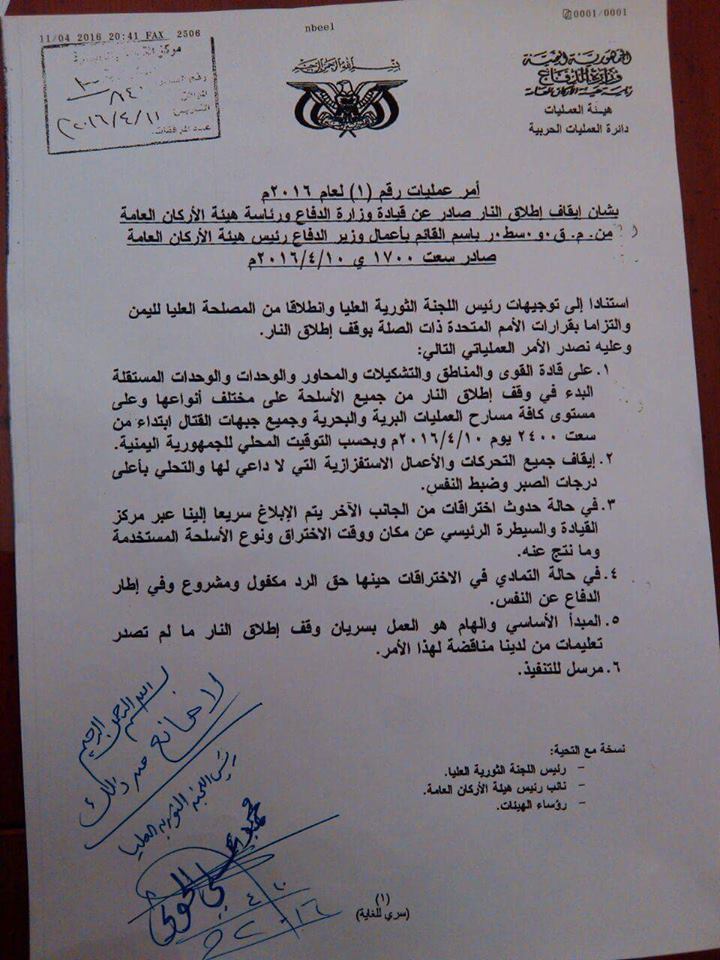 11/04 2016 20:41 FAX 2506
nbeel
0001/0001
الجمهورية اليمنية
وزارة الدفاع
رئاسة هيئة الأركان العامة
هيئة العمليات
دائرة العمليات الحربية
بسم الله الرحمن الرحيم
مركز
رقم
٨٤٠
التاريخ ٢٠١٦/٤/١١م
عدد المرفقات
أمر عمليات رقم (١) لعام ٢٠١٦م
بشان إيقاف إطلاق النار صادر عن قيادة وزارة الدفاع ورئاسة هيئة الأركان العامة
من. م. ق. و. سط. ر باسم القائم بأعمال وزير الدفاع رئيس هيئة الأركان العامة
صادر سعت ١٧٠٠ ي ٢٠١٦/٤/١٠م
استنادا إلى توجيهات رئيس اللجنة الثورية العليا وانطلاقا من المصلحة العليا لليمن
والتزاما بقرارات الأمم المتحدة ذات الصلة بوقف إطلاق النار.
وعليه نصدر الأمر العملياتي التالي:
١. على قادة القوى والمناطق والتشكيلات والمحاور والوحدات والوحدات المستقلة
البدء في وقف إطلاق النار من جميع الأسلحة على مختلف أنواعها وعلى
مستوى كافة مسارح العمليات البرية والبحرية وجميع جبهات القتال ابتداء من
سعت ٢٤٠٠ يوم ٢٠١٦/٤/١٠م وبحسب التوقيت المحلي للجمهورية اليمنية.
٢. إيقاف جميع التحركات والأعمال الاستفزازية التي لا داعي لها والتحلي بأعلى
درجات الصبر وضبط النفس.
٣. في حالة حدوث اختراقات من الجانب الآخر يتم الإبلاغ سريعا إلينا عبر مركز
القيادة والسيطرة الرئيسي عن مكان ووقت الاختراق ونوع الأسلحة المستخدمة
وما نتج عنه.
٤. في حالة التمادي في الاختراقات حينها حق الرد مكفول ومشروع وفي إطار
الدفاع عن النفس.
٥. المبدأ الأساسي والهام هو العمل بسريان وقف إطلاق النار ما لم تصدر
تعليمات من لدينا مناقضة لهذا الأمر.
٦. مرسل للتنفيذ.
بسم الله الرحمن الرحيم
لا مانع
رئيس اللجنة الثورية العليا
محمد علي الحوثي
٤
٢٠١٦
نسخة مع التحية:
– رئيس اللجنة الثورية العليا.
– نائب رئيس هيئة الأركان العامة.
– رؤساء الهيئات.
(١)
(سري للغاية)